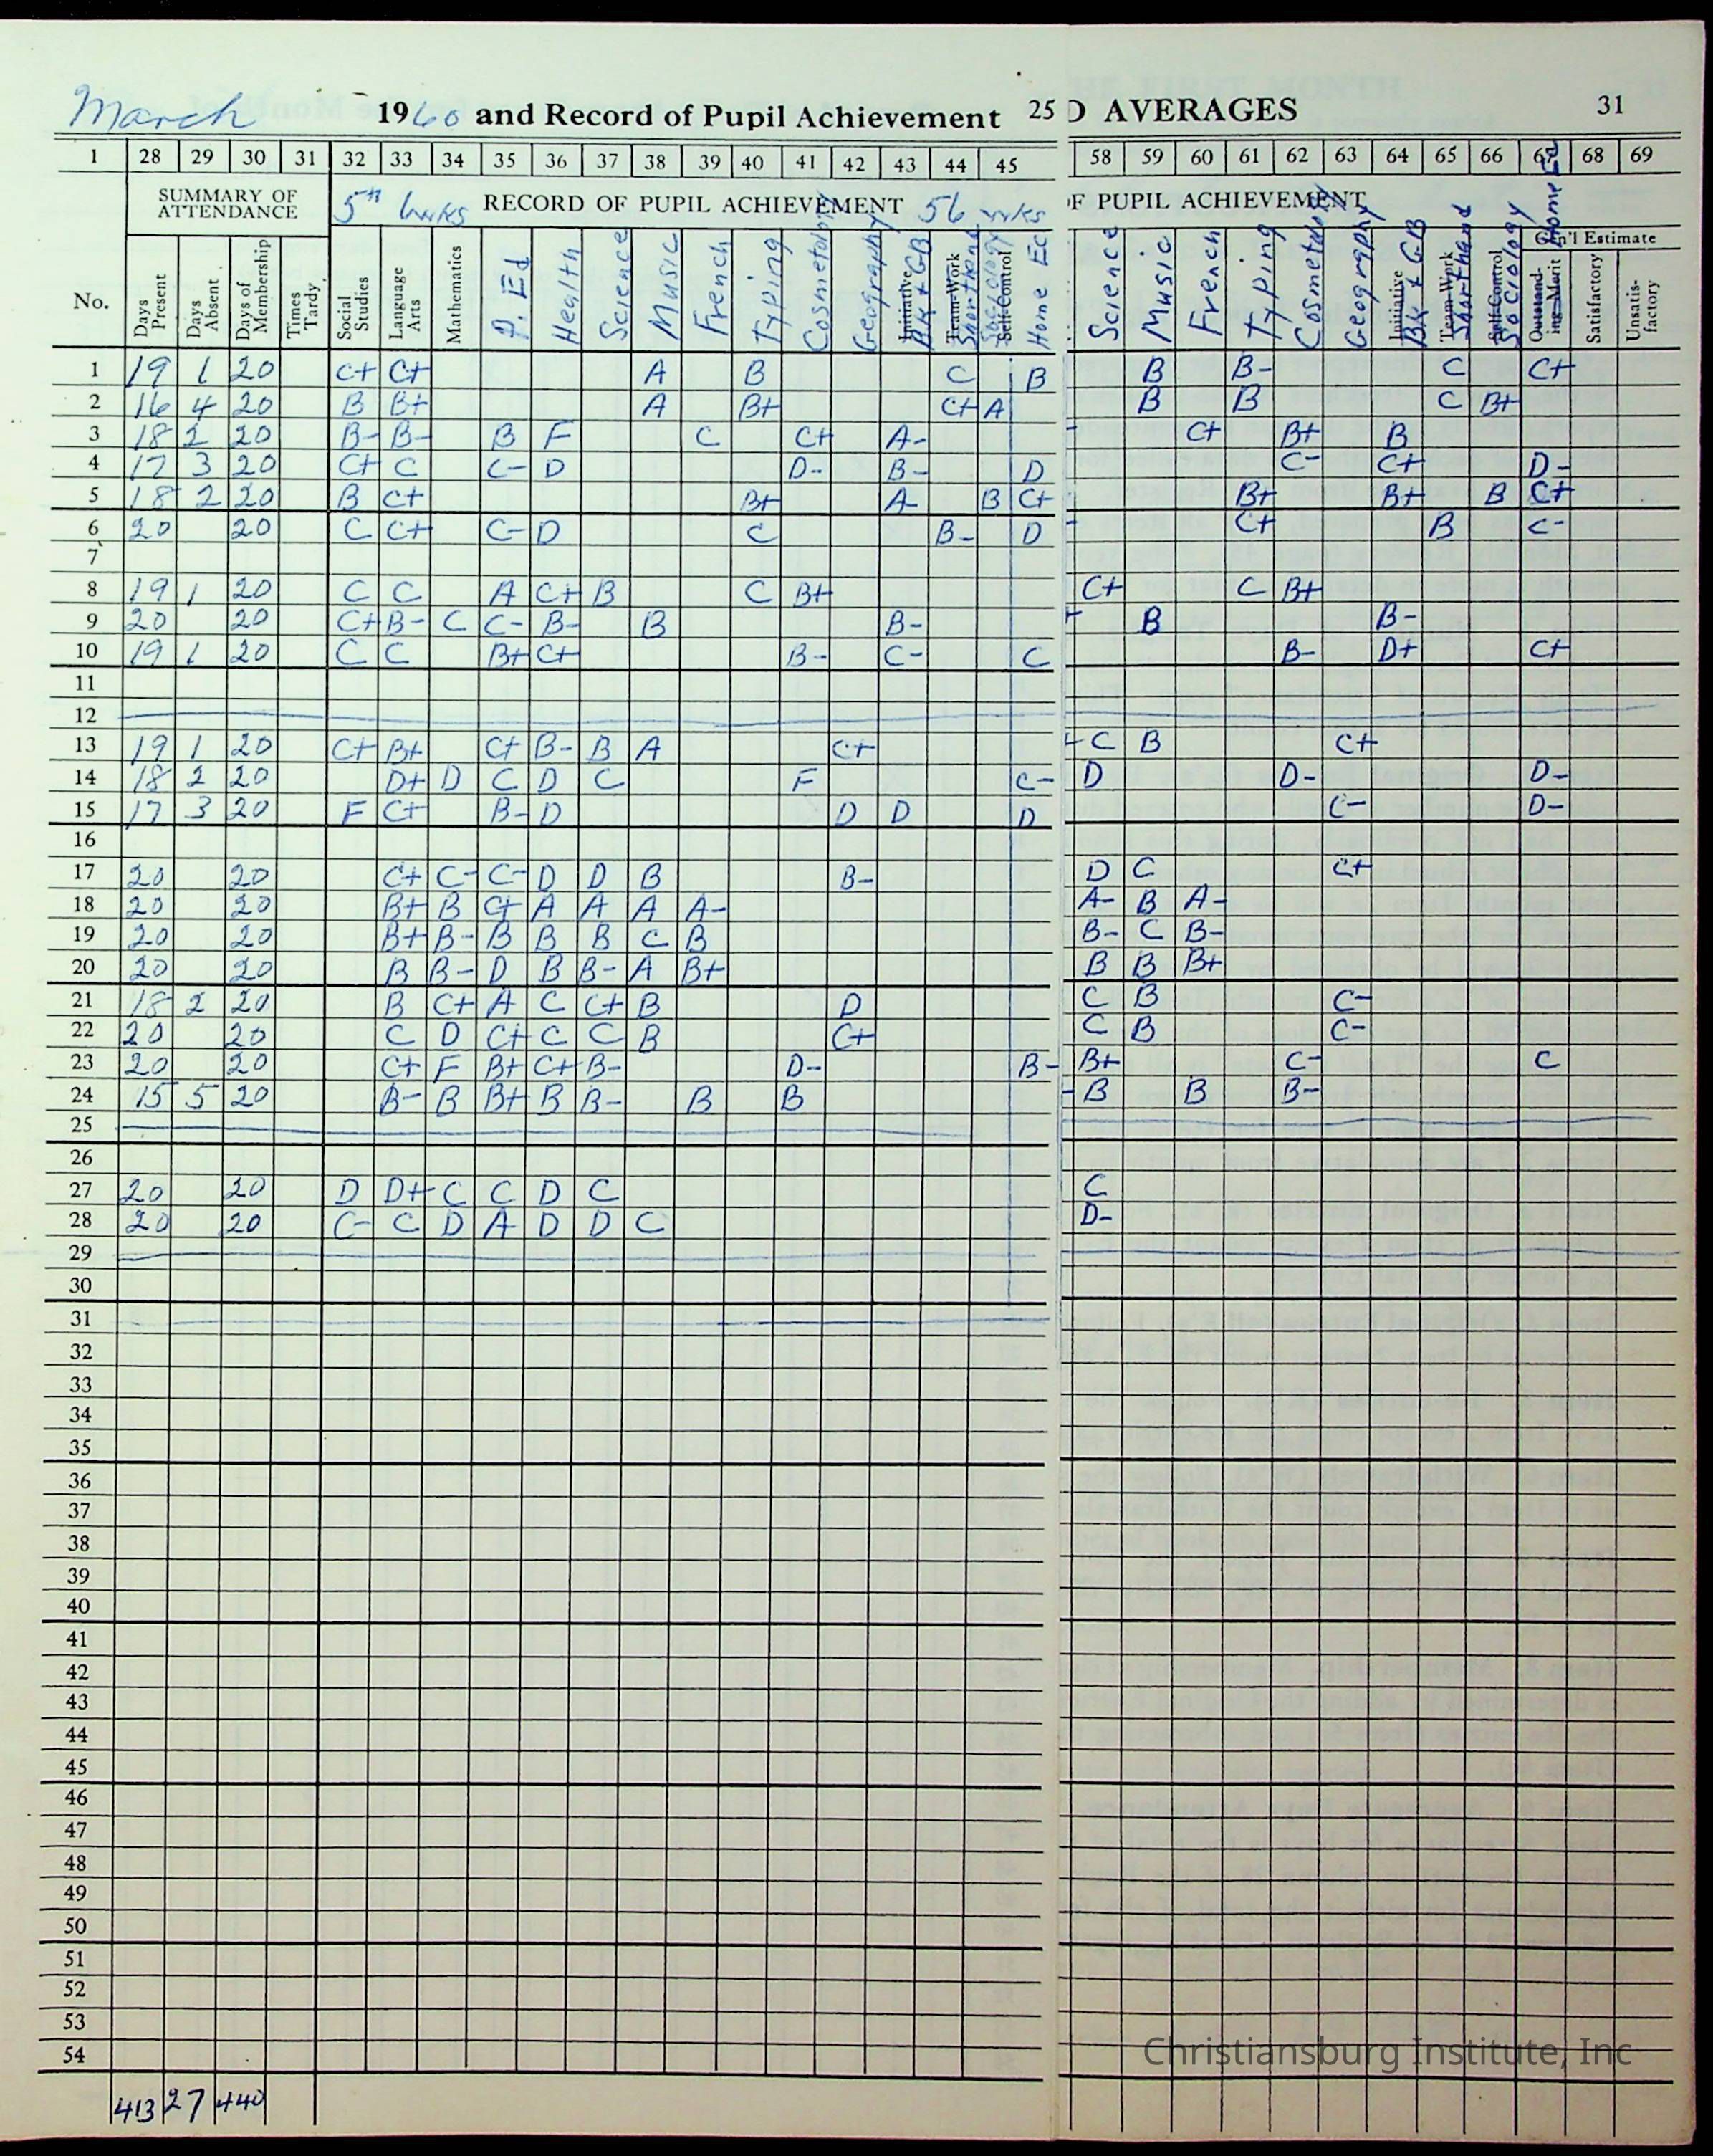 March 1960 and Record of Pupil Achievement 25 D AVERAGES 31
1 28 29 30 31 32 33 34 35 36 37 38 39 40 41 42 43 44 45 58 59 60 61 62 63 64 65 66 67 68 69
SUMMARY OF ATTENDANCE 5th 6 wks RECORD OF PUPIL ACHIEVEMENT 5th 6 wks OF PUPIL ACHIEVEMENT
Gen'l Estimate
No. Days Present Days Absent Days of Membership Times Tardy Social Studies Language Arts Mathematics P. Ed Health Science Music French Typing Cosmetology Geography Initiative BK & GB Team-Work Shorthand Sociology Self-Control Home Ec Science Music French Typing Cosmetology Geography Initiative BK & GB Team-Work Shorthand Self-Control Sociology Outstanding Merit Home Ec Satisfactory Unsatisfactory
1 19 1 20 C+ C+ A B C B B B- C C+
2 16 4 20 B B+ A B+ C+ A B B C B+
3 18 2 20 B- B- B F C C+ A- - C+ B+ B
4 17 3 20 C+ C C- D D- B- D C- C+ D-
5 18 2 20 B C+ B+ A- B C+ B+ B+ B C+
6 20 20 C C+ C- D C B- D - C+ B C-
7
8 19 1 20 C C A C+ B C B+ C+ C B+
9 20 20 C+ B- C C- B- B B- + B B-
10 19 1 20 C C B+ C+ B- C- C B- D+ C+
11
12
13 19 1 20 C+ B+ C+ B- B A C+ - C B C+
14 18 2 20 D+ D C D C F C- D D- D-
15 17 3 20 F C+ B- D D D D C- D-
16
17 20 20 C+ C- C- D D B B- D C C+
18 20 20 B+ B C+ A A A A- A- B A-
19 20 20 B+ B- B B B C B B- C B-
20 20 20 B B- D B B- A B+ B B B+
21 18 2 20 B C+ A C C+ B D C B C-
22 20 20 C D C+ C C B C+ C B C-
23 20 20 C+ F B+ C+ B- D- B- B+ C- C
24 15 5 20 B- B B+ B B- B B - B B B-
25
26
27 20 20 D D+ C C D C C
28 20 20 C- C D A D D C D-
29
30
31
32
33
34
35
36
37
38
39
40
41
42
43
44
45
46
47
48
49
50
51
52
53
54
Christiansburg Institute, Inc
413 27 440